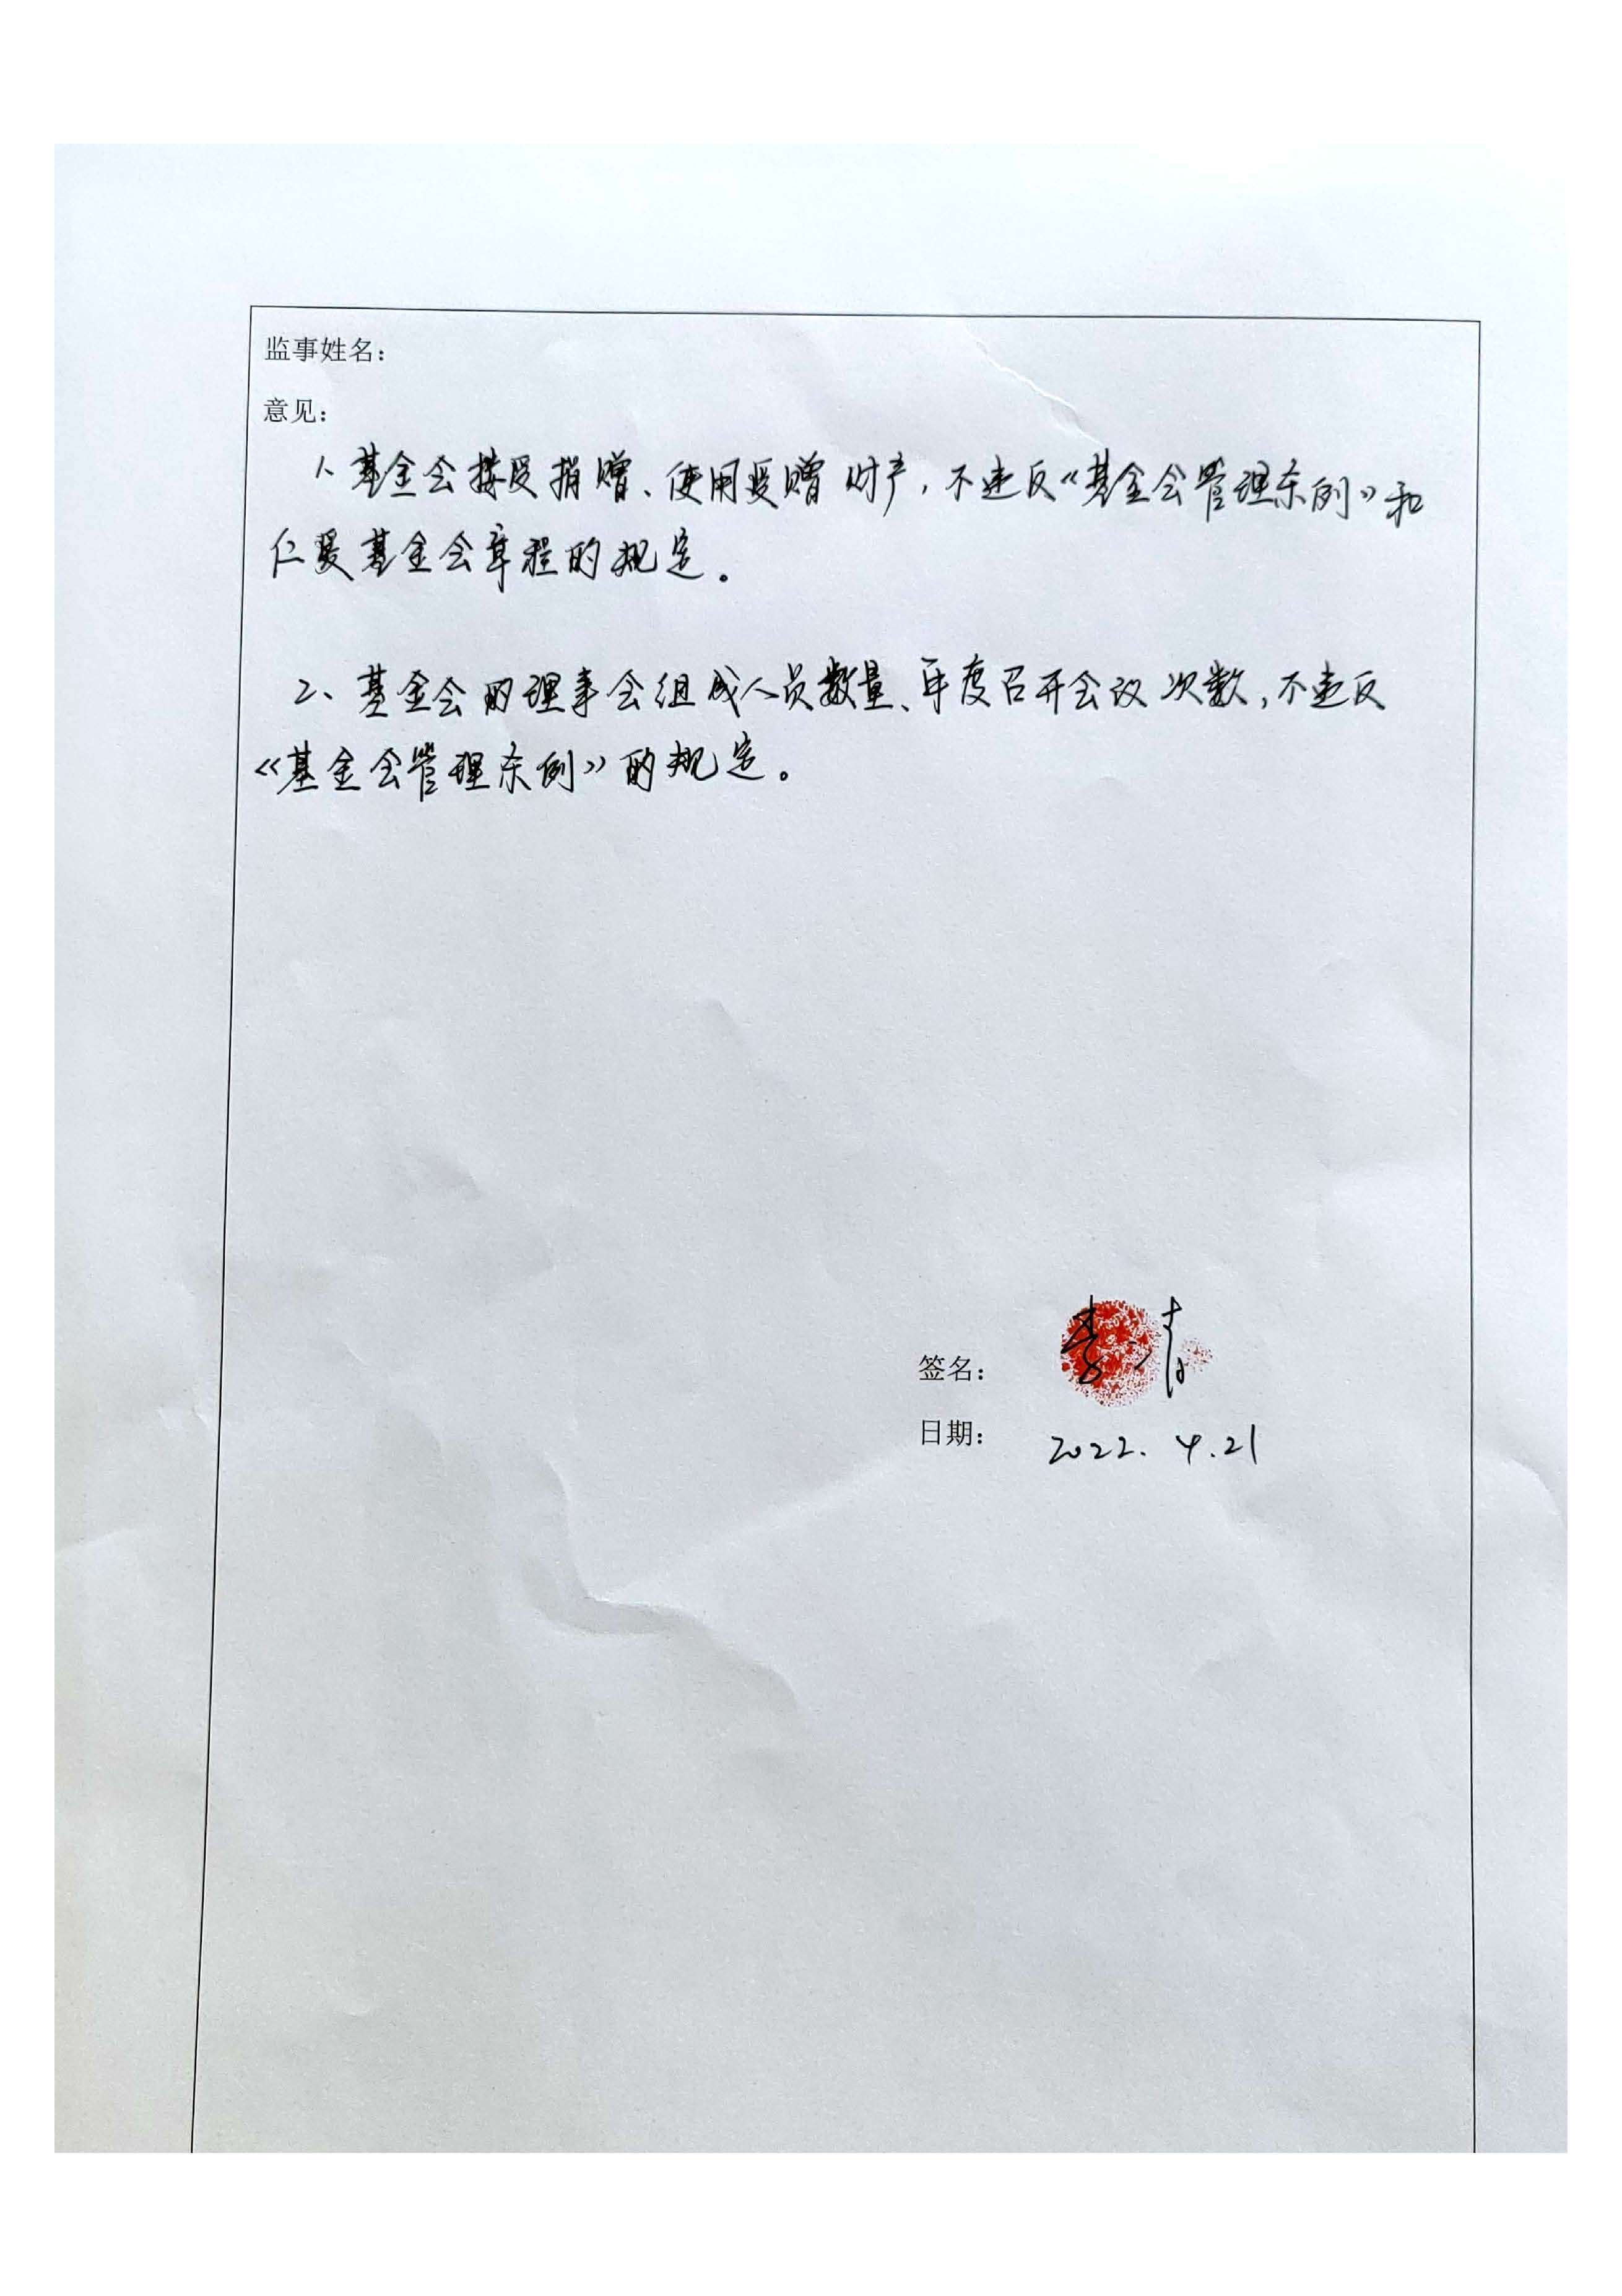 监事姓名：
意见：
1、基金会接受捐赠、使用受赠财产，不违反《基金会管理条例》和
仁爱基金会章程的规定。
2、基金会的理事会组成人员数量、年度召开会议次数，不违反
《基金会管理条例》的规定。
签名：
日期： 2022.4.21